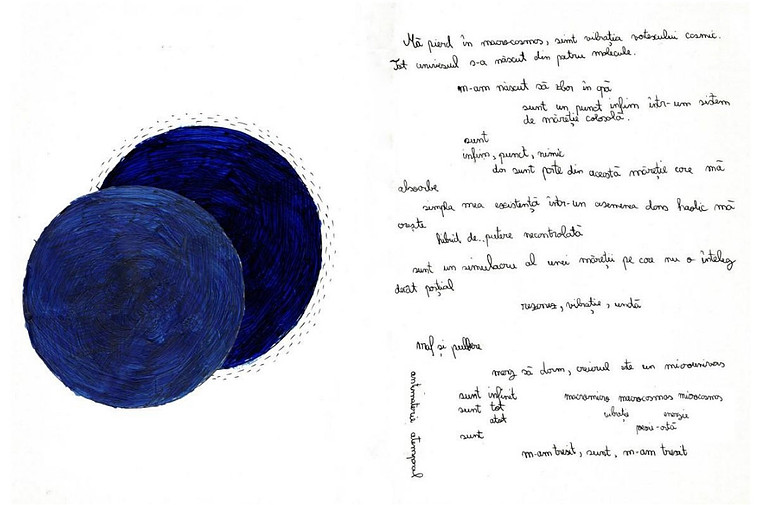 Mă pierd în macrocosmos, simt vibrația votexului cosmic.
Tot universul s-a născut din patru molecule.
m-am născut să zbor în gă
sunt un punct infim într-un sistem
de măreție colosală.
sunt
infim, punct, nimic
dar sunt parte din această măreție care mă
absorbe
simpla mea existență într-un asemenea dans haotic mă
crește
hibrid de.. putere necontrolată
sunt un simulacru al unei măreții pe care nu o înțeleg
decât parțial
rezonez, vibrație, undă
praf și pulbere
merg să dorm, creierul este un microunivers
sunt infinit macromicro macrocosmos microcosmos
sunt tot vibrație energie
atot
sunt
m-am trezit, sunt, m-am trezit
atemporal